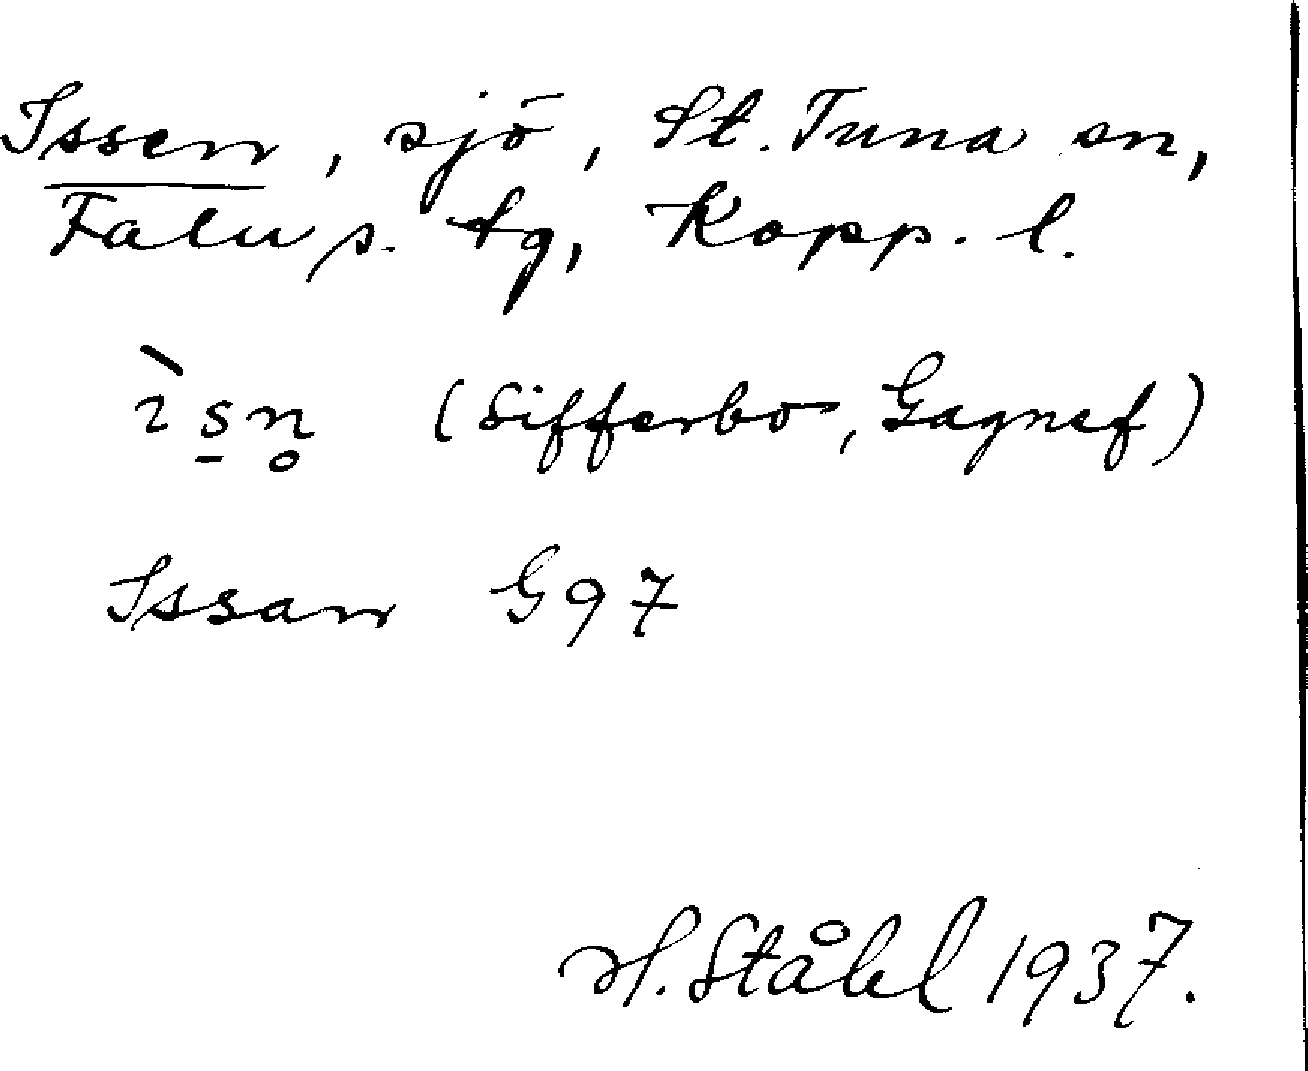 Issen, sjö, St. Tuna sn,
Falu s. tg, Kopp. l.
ìs̱n̥ (Sifferbo, Gagnef)
Issan G97
H. Ståhl 1937.